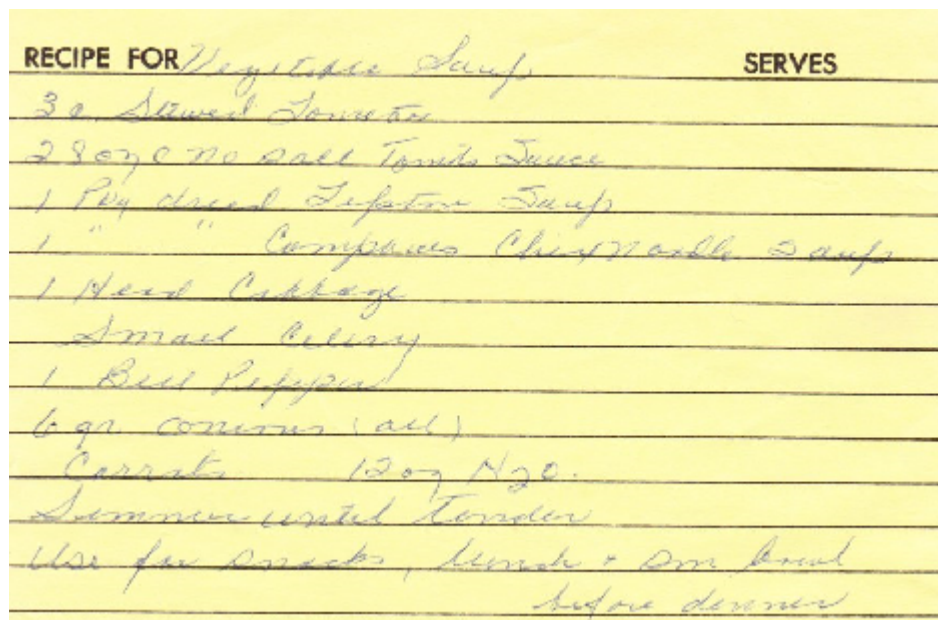 RECIPE FOR Vegetable Soup SERVES
3 c. Stewed Tomatoes
2 8 oz c no salt Tomato Sauce
1 Pkg dried Lipton Soup
1 " " Chix Noodle Soup
1 Head Cabbage
Small Celery
1 Bell Pepper
6 gr. onions (all)
Carrots 12 oz H2O.
Simmer until tender
Use for snacks, lunch + sm bowl
before dinner